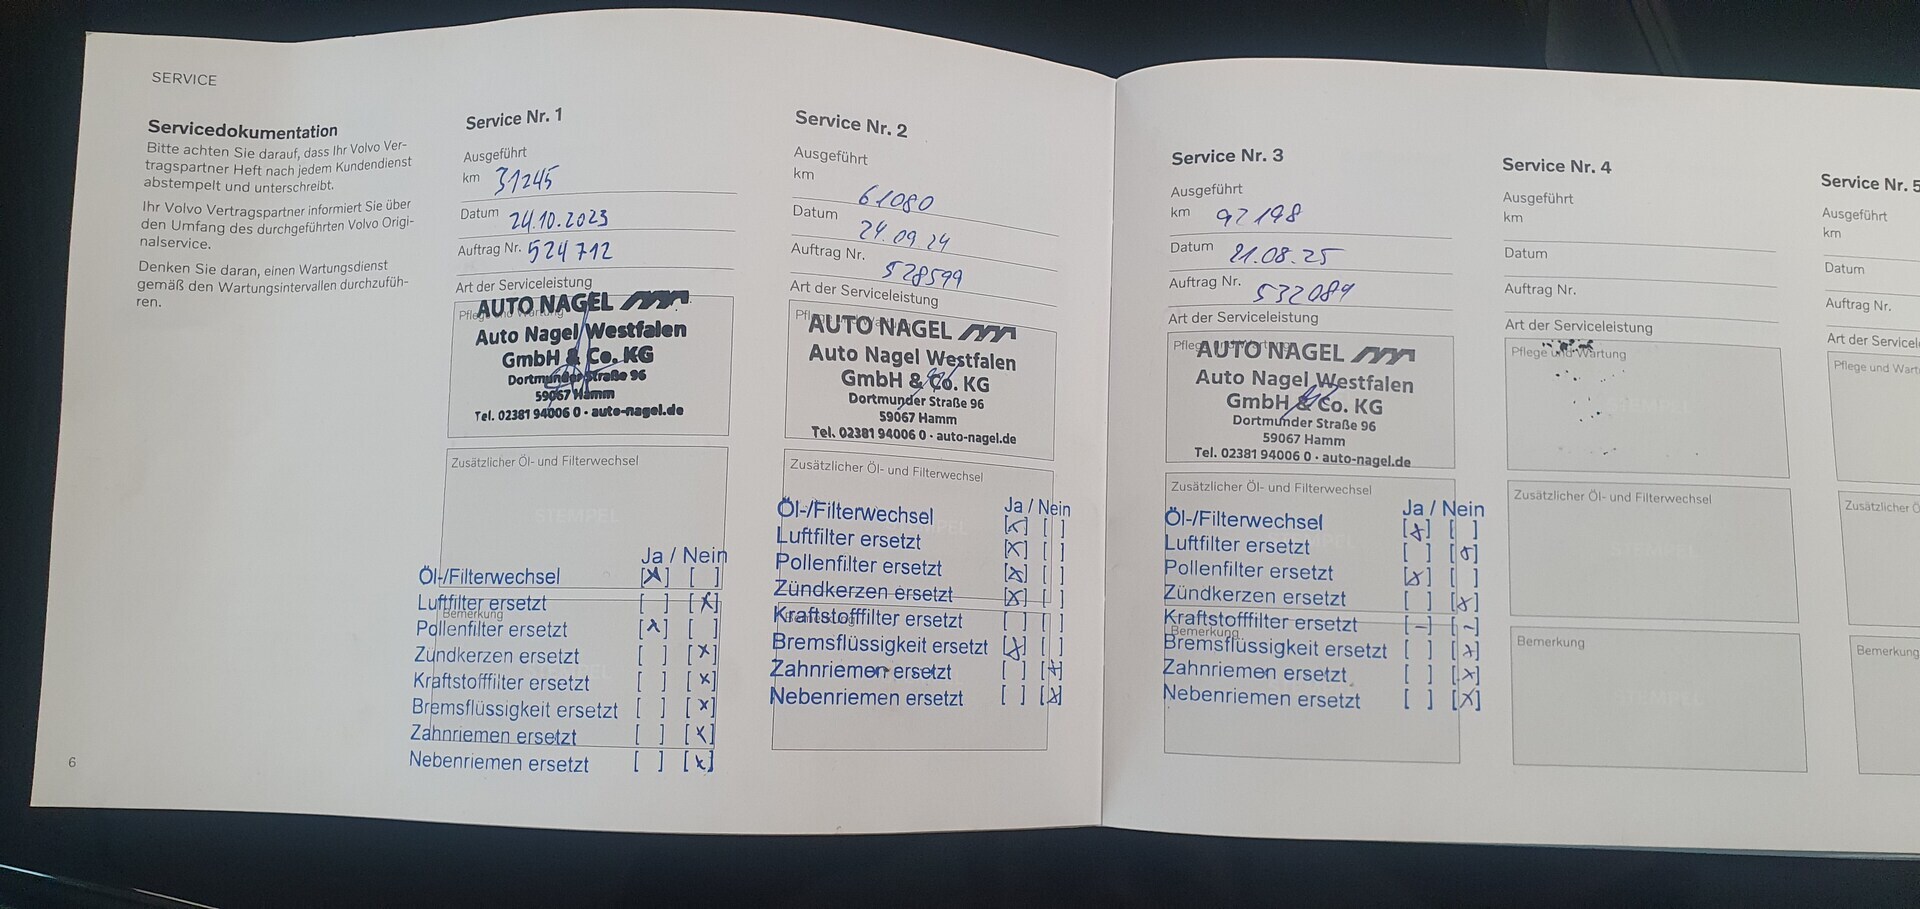 SERVICE
Servicedokumentation
Bitte achten Sie darauf, dass Ihr Volvo Ver-
tragspartner Heft nach jedem Kundendienst
abstempelt und unterschreibt.
Ihr Volvo Vertragspartner informiert Sie über
den Umfang des durchgeführten Volvo Origi-
nalservice.
Denken Sie daran, einen Wartungsdienst
gemäß den Wartungsintervallen durchzufüh-
ren.
6
Service Nr. 1
Ausgeführt
km 31245
Datum 24.10.2023
Auftrag Nr. 524712
Art der Serviceleistung
Pflege und Wartung
AUTO NAGEL
Auto Nagel Westfalen
GmbH & Co. KG
Dortmunder Straße 96
59067 Hamm
Tel. 02381 94006 0 · auto-nagel.de
Zusätzlicher Öl- und Filterwechsel
STEMPEL
Ja / Nein
Öl-/Filterwechsel [x] [ ]
Luftfilter ersetzt [ ] [x]
Bemerkung
Pollenfilter ersetzt [x] [ ]
Zündkerzen ersetzt [ ] [x]
Kraftstofffilter ersetzt [ ] [x]
Bremsflüssigkeit ersetzt [ ] [x]
Zahnriemen ersetzt [ ] [x]
Nebenriemen ersetzt [ ] [x]
Service Nr. 2
Ausgeführt
km 61080
Datum 24.09.24
Auftrag Nr. 528599
Art der Serviceleistung
AUTO NAGEL
Auto Nagel Westfalen
GmbH & Co. KG
Dortmunder Straße 96
59067 Hamm
Tel. 02381 94006 0 · auto-nagel.de
Zusätzlicher Öl- und Filterwechsel
Ja / Nein
Öl-/Filterwechsel [x] [ ]
Luftfilter ersetzt [x] [ ]
Pollenfilter ersetzt [x] [ ]
Zündkerzen ersetzt [x] [ ]
Kraftstofffilter ersetzt [ ] [ ]
Bremsflüssigkeit ersetzt [x] [ ]
Zahnriemen ersetzt [ ] [x]
Nebenriemen ersetzt [ ] [x]
Service Nr. 3
Ausgeführt
km 92198
Datum 21.08.25
Auftrag Nr. 532089
Art der Serviceleistung
Pflege und Wartung
AUTO NAGEL
Auto Nagel Westfalen
GmbH & Co. KG
Dortmunder Straße 96
59067 Hamm
Tel. 02381 94006 0 · auto-nagel.de
Zusätzlicher Öl- und Filterwechsel
Ja / Nein
Öl-/Filterwechsel [x] [ ]
Luftfilter ersetzt [ ] [x]
Pollenfilter ersetzt [x] [ ]
Zündkerzen ersetzt [ ] [x]
Kraftstofffilter ersetzt [-] [-]
Bemerkung
Bremsflüssigkeit ersetzt [ ] [x]
Zahnriemen ersetzt [ ] [x]
Nebenriemen ersetzt [ ] [x]
Service Nr. 4
Ausgeführt
km
Datum
Auftrag Nr.
Art der Serviceleistung
Pflege und Wartung
Zusätzlicher Öl- und Filterwechsel
Bemerkung
Service Nr. 5
Ausgeführt
km
Datum
Auftrag Nr.
Art der Servicel
Pflege und Wart
Zusätzlicher Ö
Bemerkung